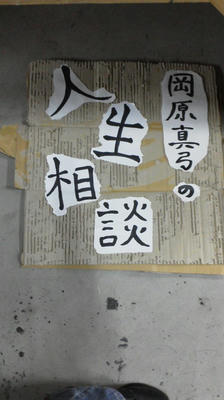 岡原真弓の
人生相談